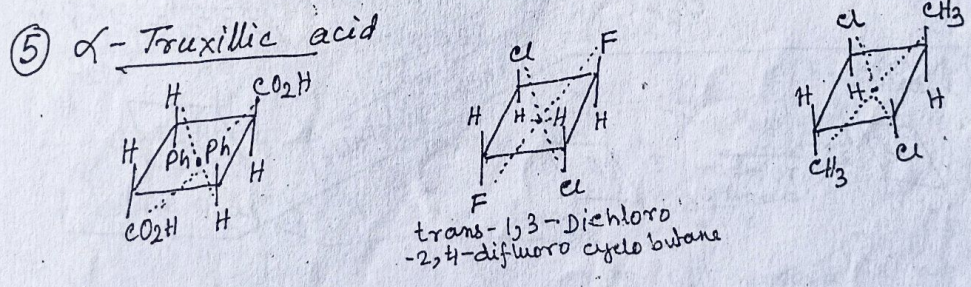 ⑤ α- Truxillic acid
H CO2H
H Ph Ph H
CO2H H
Cl F
H H H H
F Cl
trans-1,3-Dichloro
-2,4-difluoro cyclobutane
Cl CH3
H H H
CH3 Cl